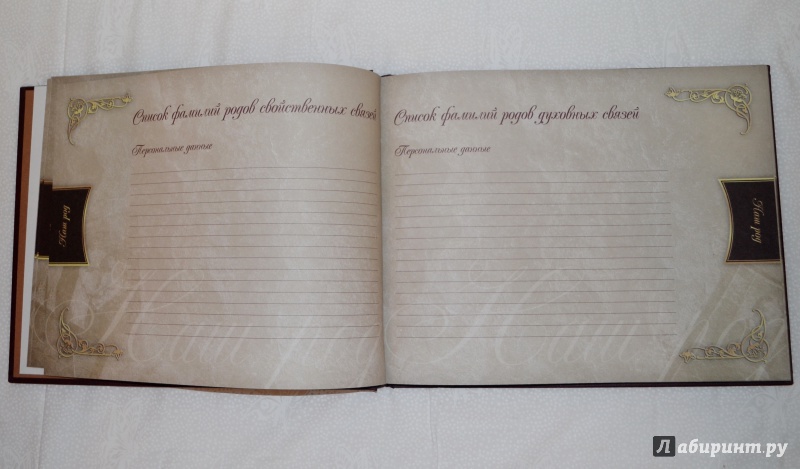 Список фамилий родов свойственных связей
Персональные данные
Наш род
Наш род
Список фамилий родов духовных связей
Персональные данные
Наш род
Наш род
Лабиринт.ру